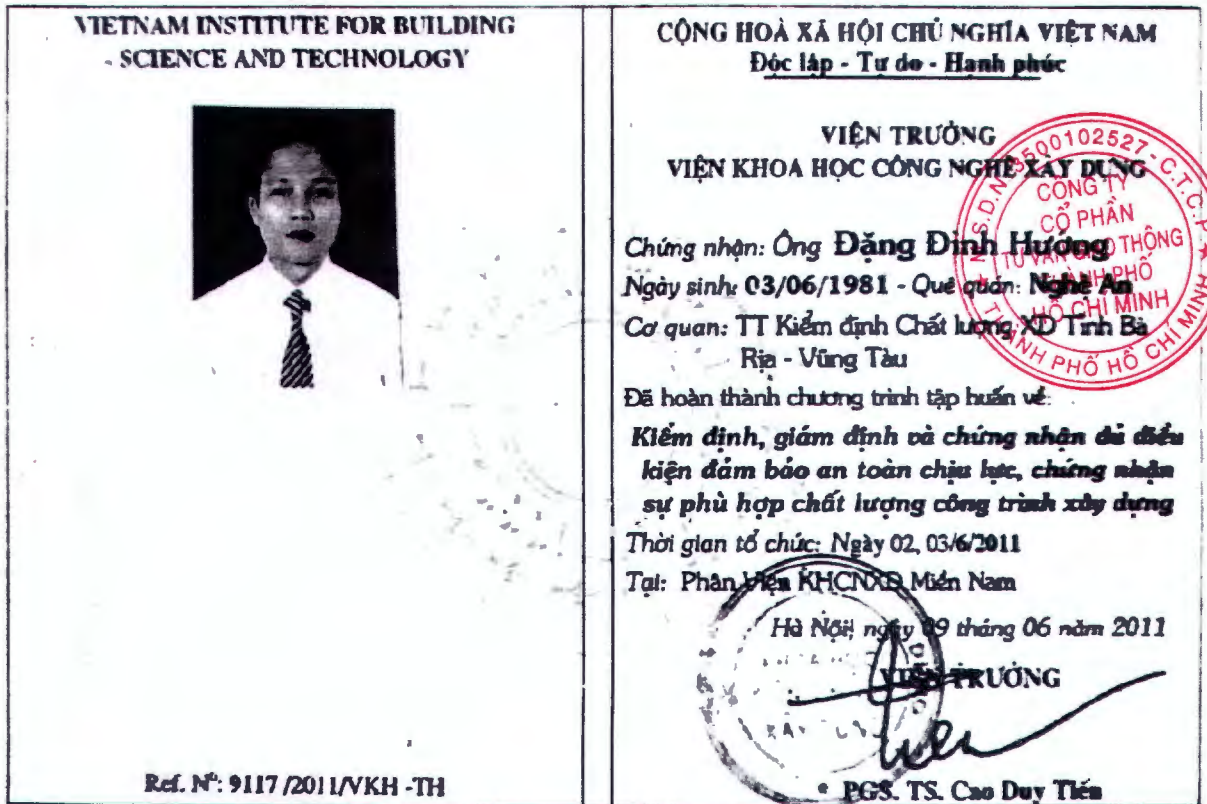 VIETNAM INSTITUTE FOR BUILDING
SCIENCE AND TECHNOLOGY
Ref. Nº: 9117 /2011/VKH -TH
CỘNG HOÀ XÃ HỘI CHỦ NGHĨA VIỆT NAM
Độc lập - Tự do - Hạnh phúc
VIỆN TRƯỞNG
VIỆN KHOA HỌC CÔNG NGHỆ XÂY DỰNG
Chứng nhận: Ông Đặng Đình Hướng
Ngày sinh: 03/06/1981 - Quê quán: Nghệ An
Cơ quan: TT Kiểm định Chất lượng XD Tỉnh Bà
Rịa - Vũng Tàu
Đã hoàn thành chương trình tập huấn về:
Kiểm định, giám định và chứng nhận đủ điều
kiện đảm bảo an toàn chịu lực, chứng nhận
sự phù hợp chất lượng công trình xây dựng
Thời gian tổ chức: Ngày 02, 03/6/2011
Tại: Phân Viện KHCNXD Miền Nam
Hà Nội, ngày 09 tháng 06 năm 2011
VIỆN TRƯỞNG
PGS. TS. Cao Duy Tiến
3500102527 - C.T.C.P
CÔNG TY
CỔ PHẦN
TƯ VẤN GIAO THÔNG
THÀNH PHỐ
HỒ CHÍ MINH
THÀNH PHỐ HỒ CHÍ MINH